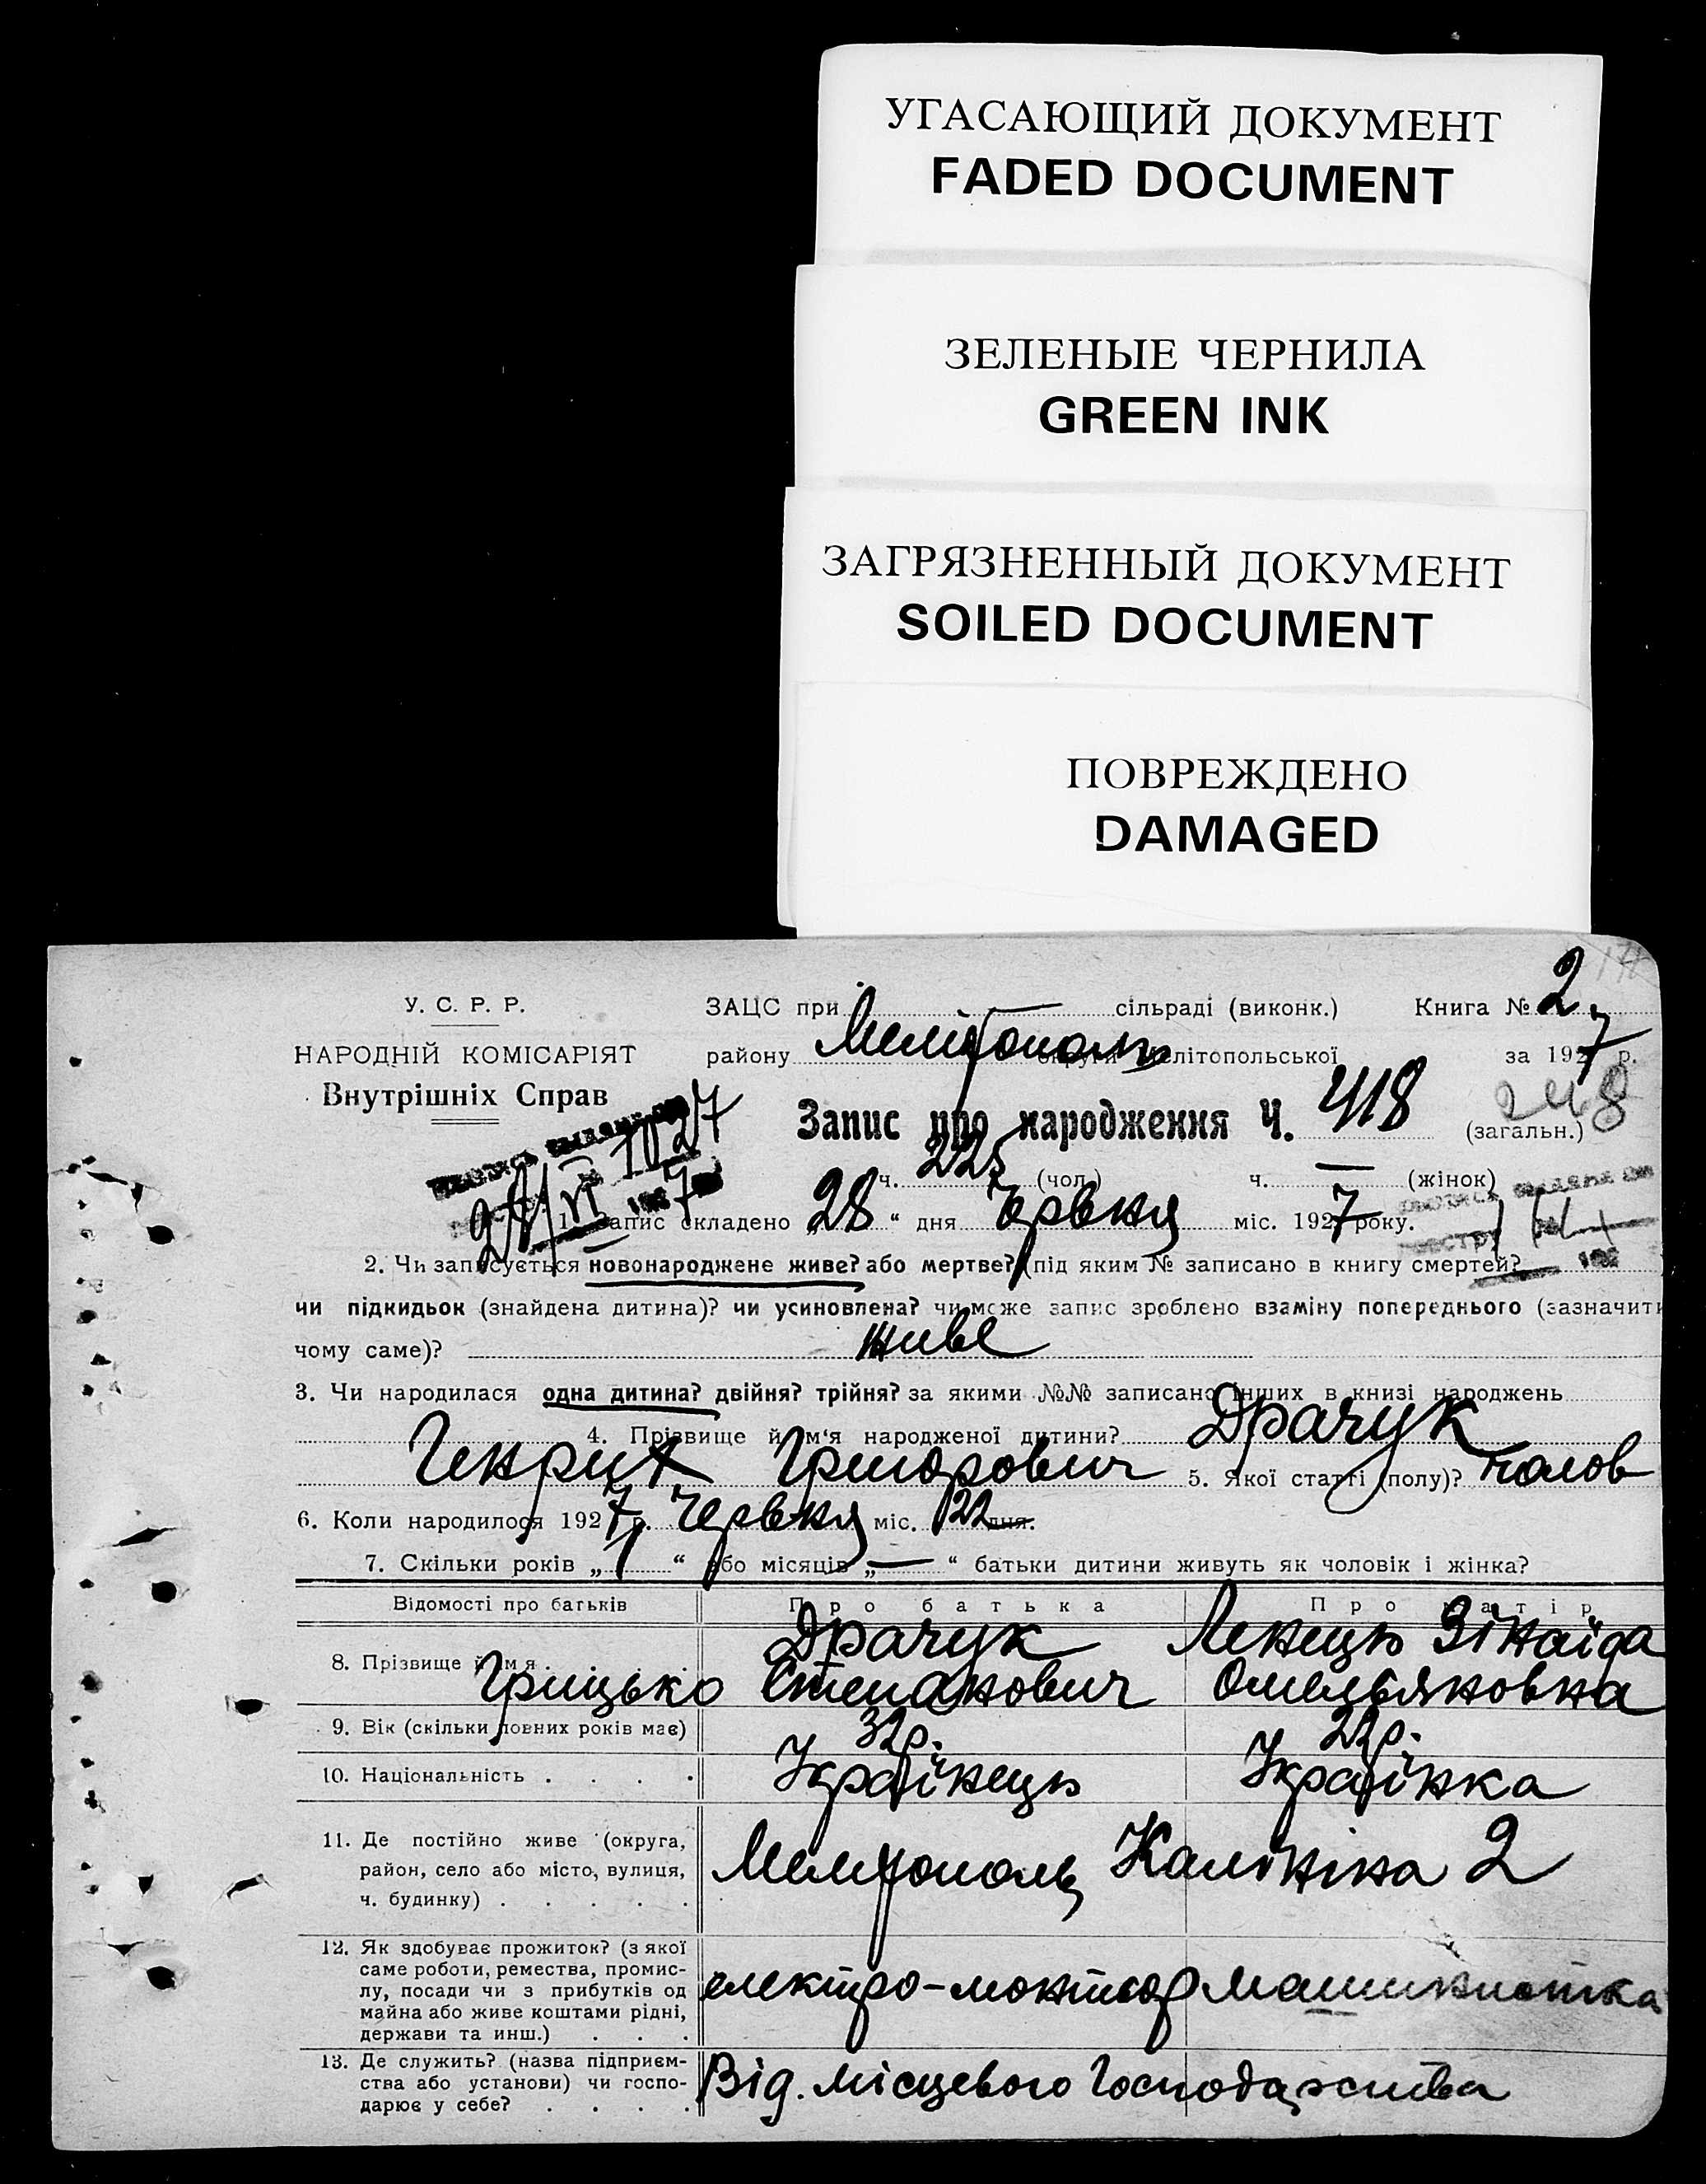 УГАСАЮЩИЙ ДОКУМЕНТ
FADED DOCUMENT
ЗЕЛЕНЫЕ ЧЕРНИЛА
GREEN INK
ЗАГРЯЗНЕННЫЙ ДОКУМЕНТ
SOILED DOCUMENT
ПОВРЕЖДЕНО
DAMAGED
У. С. Р. Р. ЗАЦС при сільраді (виконк.) Книга № 2
НАРОДНІЙ КОМІСАРІЯТ району Мелітополь округи Мелітопольської за 1927 р.
Внутрішніх Справ
Запис про народження Ч. 418 (загальн.) 248
ч. 225 (чол.) ч. — (жінок)
1. Запис складено „28“ дня Червня міс. 1927 року.
2. Чи записується новонароджене живе? або мертве? (під яким № записано в книгу смертей?
чи підкидьок (знайдена дитина)? чи усиновлена? чи може запис зроблено взаміну попереднього (зазначити
чому саме)? живе
3. Чи народилася одна дитина? двійня? трійня? за якими №№ записано інших в книзі народжень
4. Прізвище й ім‘я народженої дитини? Драчук
Генрих Григорович 5. Якої статті (полу)? чолов
6. Коли народилося 1927 р. Червня міс. 22 дня.
7. Скільки років „1“ або місяців „—“ батьки дитини живуть як чоловік і жінка?
Відомості про батьків Про батька Про матір
8. Прізвище й ім‘я . Драчук Ленець Зінаїда
Грицько Степанович Омельяновна
9. Вік (скільки повних років має) 32р. 22р.
10. Національність . . . . Українець Українка
11. Де постійно живе (округа,
район, село або місто, вулиця, Мелітополь Калініна 2
ч. будинку) . . . . .
12. Як здобуває прожиток? (з якої
саме роботи, ремества, промис-
лу, посади чи з прибутків од електро-монтьор Машинистка
майна або живе коштами рідні,
держави та инш.) . . .
13. Де служить? (назва підприєм-
ства або установи) чи госпо- Від. місцевого Господарства
дарює у себе? . . . .